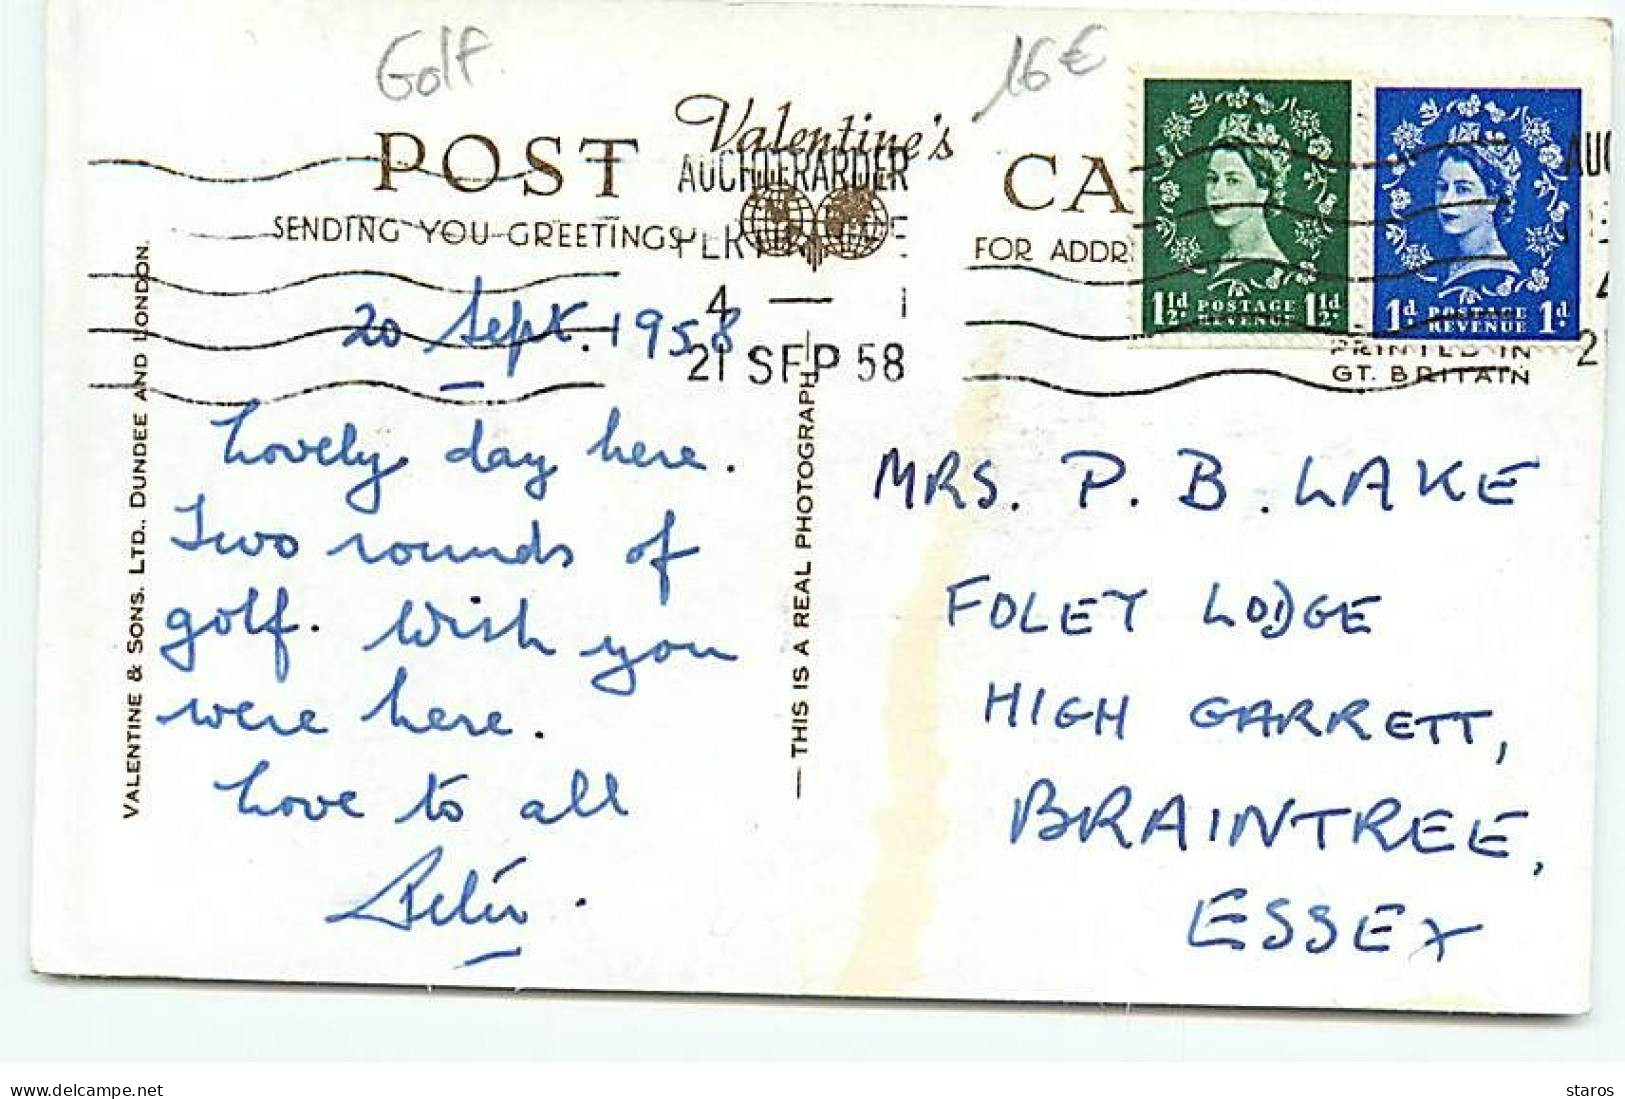 Golf
16€
Valentine's
POST CA
AUCHTERARDER
SENDING YOU GREETINGS
FOR ADDR
4
20 Sept. 1958
21 SEP 58
1½d POSTAGE REVENUE 1½d
1d POSTAGE REVENUE 1d
AUC
4
2
PRINTED IN
GT. BRITAIN
VALENTINE & SONS. LTD., DUNDEE AND LONDON.
THIS IS A REAL PHOTOGRAPH
Lovely day here.
Two rounds of
golf. Wish you
were here.
Love to all
Peter.
MRS. P. B. LAKE
FOLEY LODGE
HIGH GARRETT,
BRAINTREE,
ESSEX
delcampe.net
staros